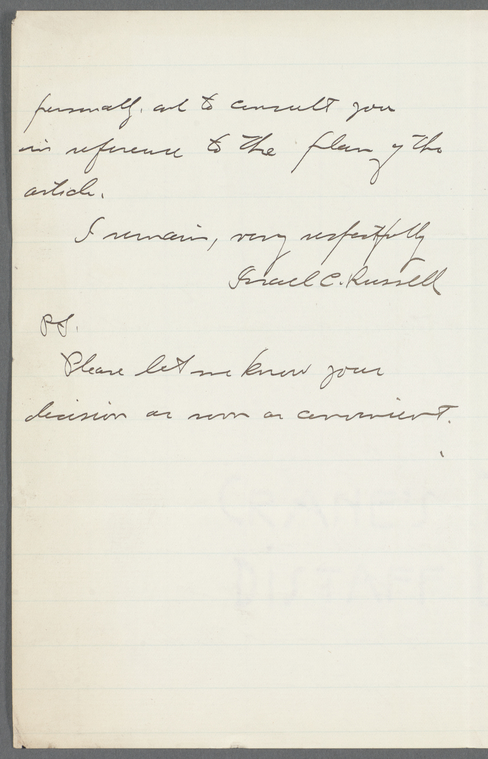 personally, and to consult you
in reference to the plan of the
article.
I remain, very respectfully
Israel C. Russell
P.S.
Please let me know your
decision as soon as convenient.